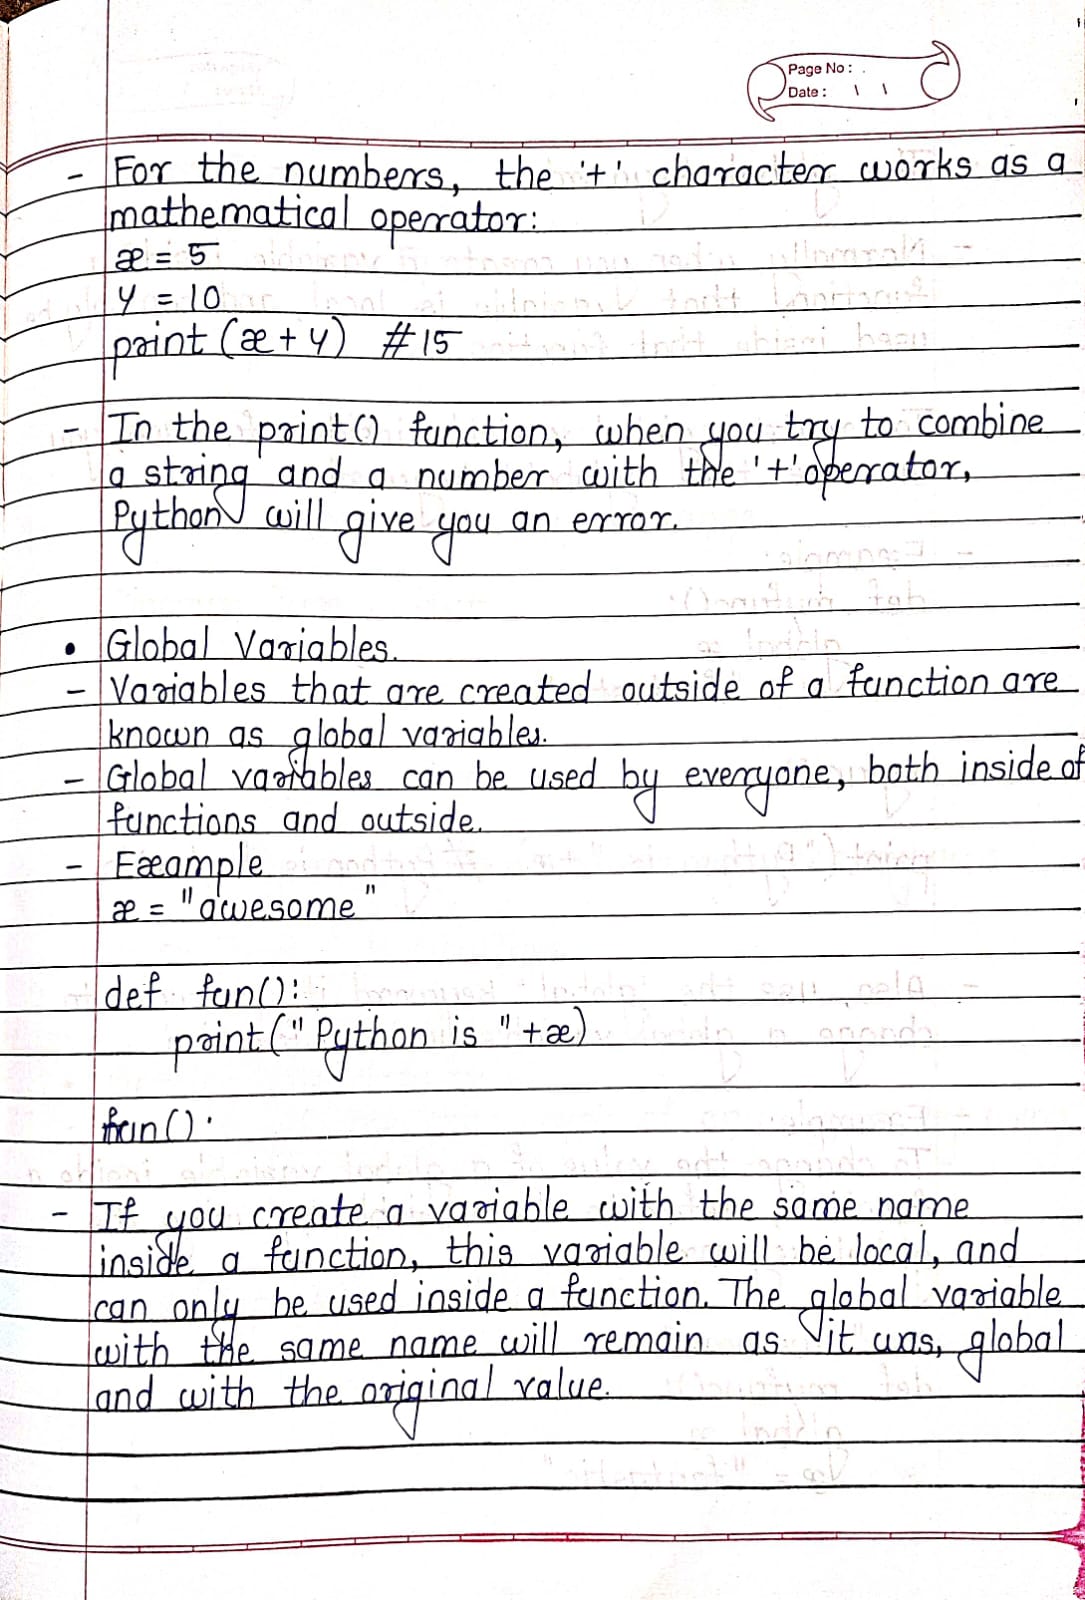 Page No :
Date : / /
- For the numbers, the '+' character works as a
mathematical operator:
x = 5
y = 10
print (x + y) #15
- In the print() function, when you try to combine
a string and a number with the '+' operator,
Python will give you an error.
• Global Variables.
- Variables that are created outside of a function are
known as global variables.
- Global variables can be used by everyone, both inside of
functions and outside.
- Example
x = "awesome"
def fun():
print (" Python is " + x)
fun()
- If you create a variable with the same name
inside a function, this variable will be local, and
can only be used inside a function. The global variable
with the same name will remain as it was, global
and with the original value.